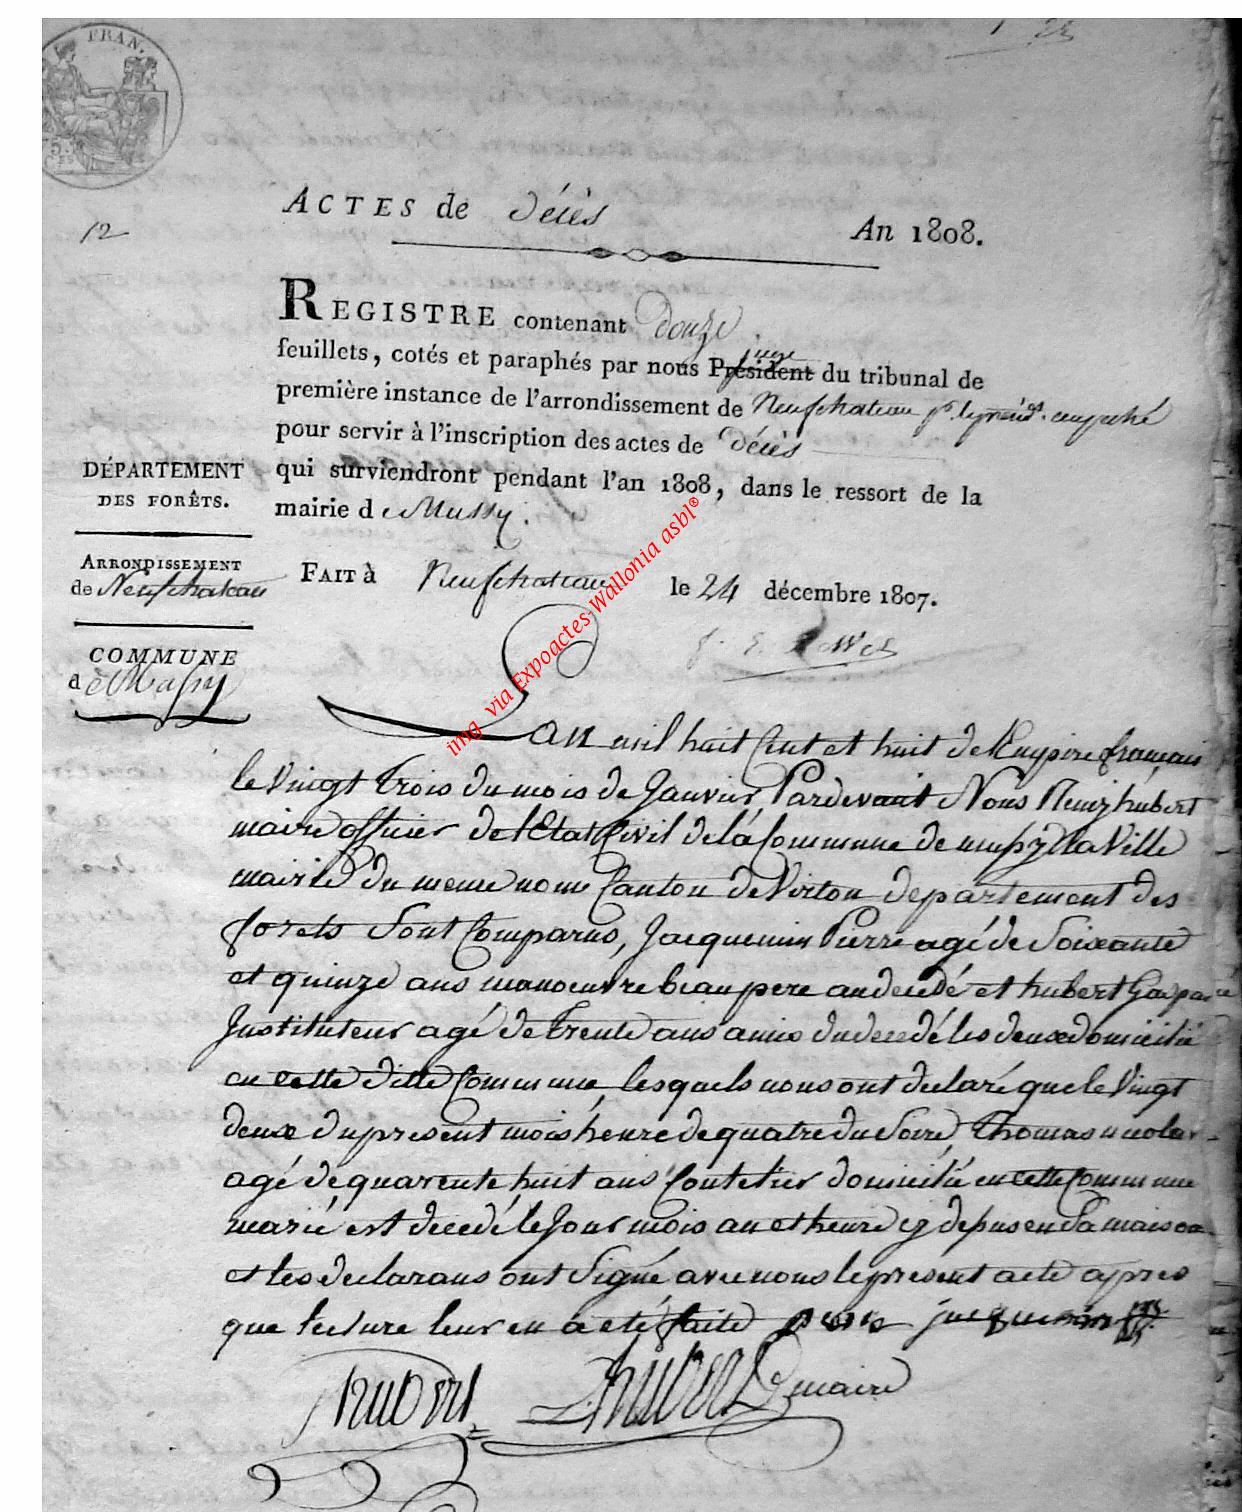 FRAN.
12
ACTES de décès
An 1808.
REGISTRE contenant Douze
feuillets, cotés et paraphés par nous Président juge du tribunal de
première instance de l'arrondissement de Neufchateau pr. le présidt. empeché
pour servir à l'inscription des actes de décès
qui surviendront pendant l'an 1808, dans le ressort de la
mairie de Mussy.
DÉPARTEMENT
DES FORÊTS.
ARRONDISSEMENT
de Neufchateau
COMMUNE
d e Mussy
FAIT à Neufchateau le 24 décembre 1807.
img via Expoactes-Wallonia asbl®
L'an mil huit Cent et huit de l'Empire français
le Vingt Trois du mois de Janvier, Pardevant Nous hubert
maire officier de l'Etat Civil de la Commune de mussy la Ville
mairie du meme nome Canton de Virton departement des
forets Sont Comparus, Jacquemin Pierre agé de Soixante
et quinze ans manoeuvre beau pere au decedé et hubert Gaspard
Instituteur agé de Trente ans amis du decedé les deux domicilié
en cette ditte Commune, lesquels nous ont declaré que le Vingt
deux du present mois héure de quatre du Soire Thomas nicolas
agé de quarente huit ans domicilié en cette Commune
marié est decedé le Jour mois an et heure cy depus en Sa maison
et les declarans ont Signé avec nous le present acte apres
que lecture leur en a eté faite jacquemin
hubert hubert maire